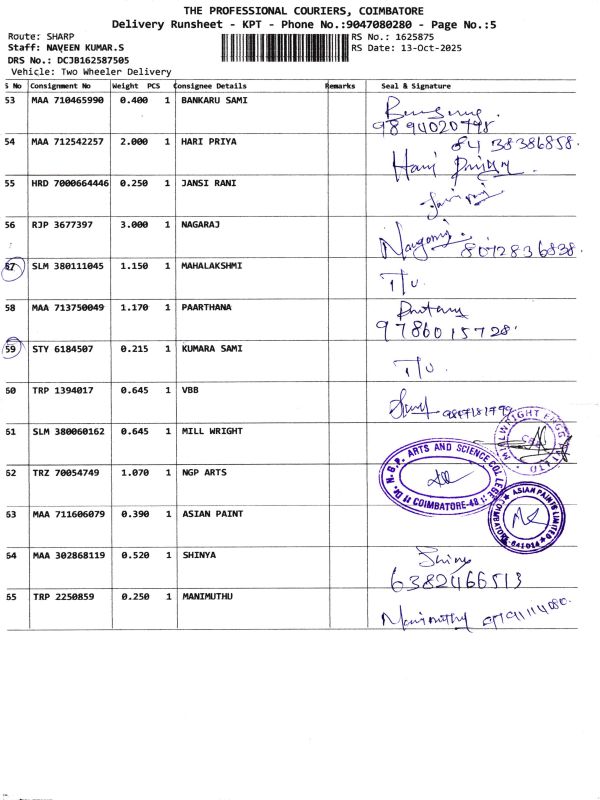 THE PROFESSIONAL COURIERS, COIMBATORE
Delivery Runsheet - KPT - Phone No.:9047080280 - Page No.:5
Route: SHARP
RS No.: 1625875
Staff: NAVEEN KUMAR.S
RS Date: 13-Oct-2025
DRS No.: DCJB162587505
Vehicle: Two Wheeler Delivery
S No Consignment No Weight PCS Consignee Details Remarks Seal & Signature
53 MAA 710465990 0.400 1 BANKARU SAMI
9894020798
54 MAA 712542257 2.000 1 HARI PRIYA 8438386858.
Hari Priya
55 HRD 7000664446 0.250 1 JANSI RANI
56 RJP 3677397 3.000 1 NAGARAJ
8012836838.
57 SLM 380111045 1.150 1 MAHALAKSHMI
58 MAA 713750049 1.170 1 PAARTHANA
9786015728.
59 STY 6184507 0.215 1 KUMARA SAMI
60 TRP 1394017 0.645 1 VBB
61 SLM 380060162 0.645 1 MILL WRIGHT
62 TRZ 70054749 1.070 1 NGP ARTS
Dr. N.G.P. ARTS AND SCIENCE COLLEGE COIMBATORE-48
63 MAA 711606079 0.390 1 ASIAN PAINT
ASIAN PAINTS LIMITED COIMBATORE-641014
64 MAA 302868119 0.520 1 SHINYA
6382466513
65 TRP 2250859 0.250 1 MANIMUTHU
Manimuthu